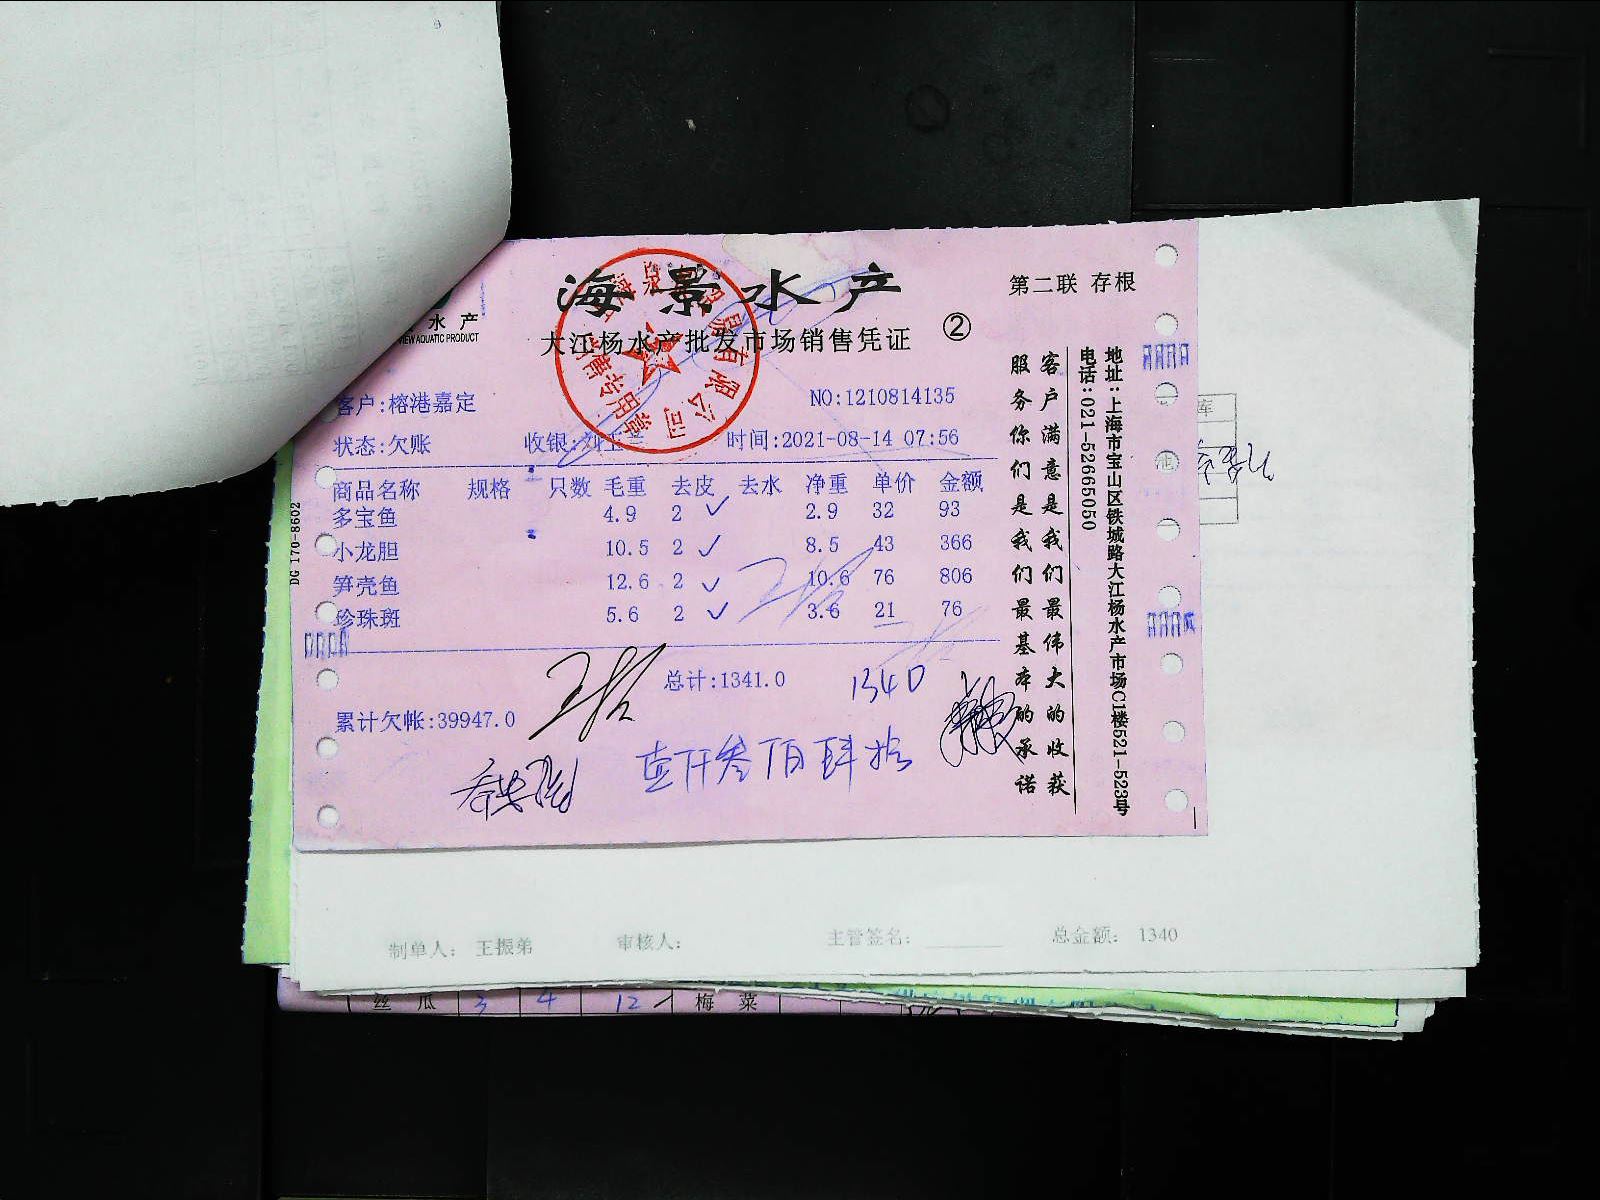 海景水产
第二联 存根
水产
VIEW AQUATIC PRODUCT
大江杨水产批发市场销售凭证 ②
客户:榕港嘉定 NO:1210814135
状态:欠账 收银: 时间:2021-08-14 07:56
商品名称 规格 只数 毛重 去皮 去水 净重 单价 金额
多宝鱼 4.9 2 ✓ 2.9 32 93
小龙胆 10.5 2 ✓ 8.5 43 366
笋壳鱼 12.6 2 ✓ 10.6 76 806
珍珠斑 5.6 2 ✓ 3.6 21 76
总计:1341.0 1340
累计欠帐:39947.0
壹仟叁佰肆拾
客户满意是我们最伟大的收获
服务你们是我们最基本的承诺
地址:上海市宝山区铁城路大江杨水产市场C1楼521-523号
电话:021-52665050
DG 170-8602
有限公司
库
制单人: 王振弟 审核人: 主管签名: 总金额: 1340
丝瓜 3 4 12 梅菜